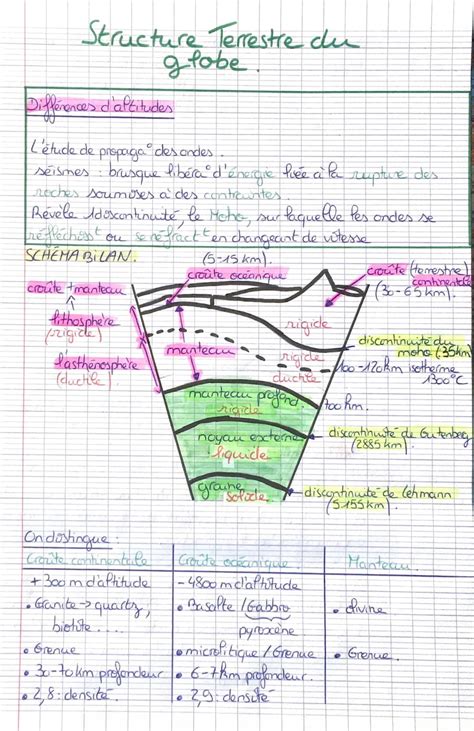 Structure Terrestre du
globe.
Différences d'altitudes
L'étude de propaga° des ondes.
séismes : brusque libéra° d'énergie liée à la rupture des
roches soumises à des contraintes.
Révèle 1 discontinuité, le Moho, sur laquelle les ondes se
réfléchiss^t ou se réfract^t en changeant de vitesse
SCHÉMA BILAN.
(5-15 km).
croûte océanique
croûte (terrestre)
continentale
(30-65 km).
croûte + manteau
lithosphère
(rigide)
rigide
manteau
rigide
discontinuité du
moho (35km)
l'asthénosphère
(ductile)
ductile
100-120km isotherme
1300°C
manteau profond
rigide
700 km.
noyau externe
liquide
discontinuité de Gutenberg
(2885 km).
graine
solide
discontinuité de Lehmann
(5155 km).
On distingue :
Croûte continentale
Croûte océanique
Manteau
+ 300 m d'altitude
- 4800 m d'altitude
• Granite → quartz,
biotite ....
• Basalte / Gabbro
pyroxène
• olivine
• Grenue
• microlitique / Grenue
• Grenue.
• 30-70 km profondeur
• 6-7 km profondeur.
• 2,8 : densité
• 2,9 : densité